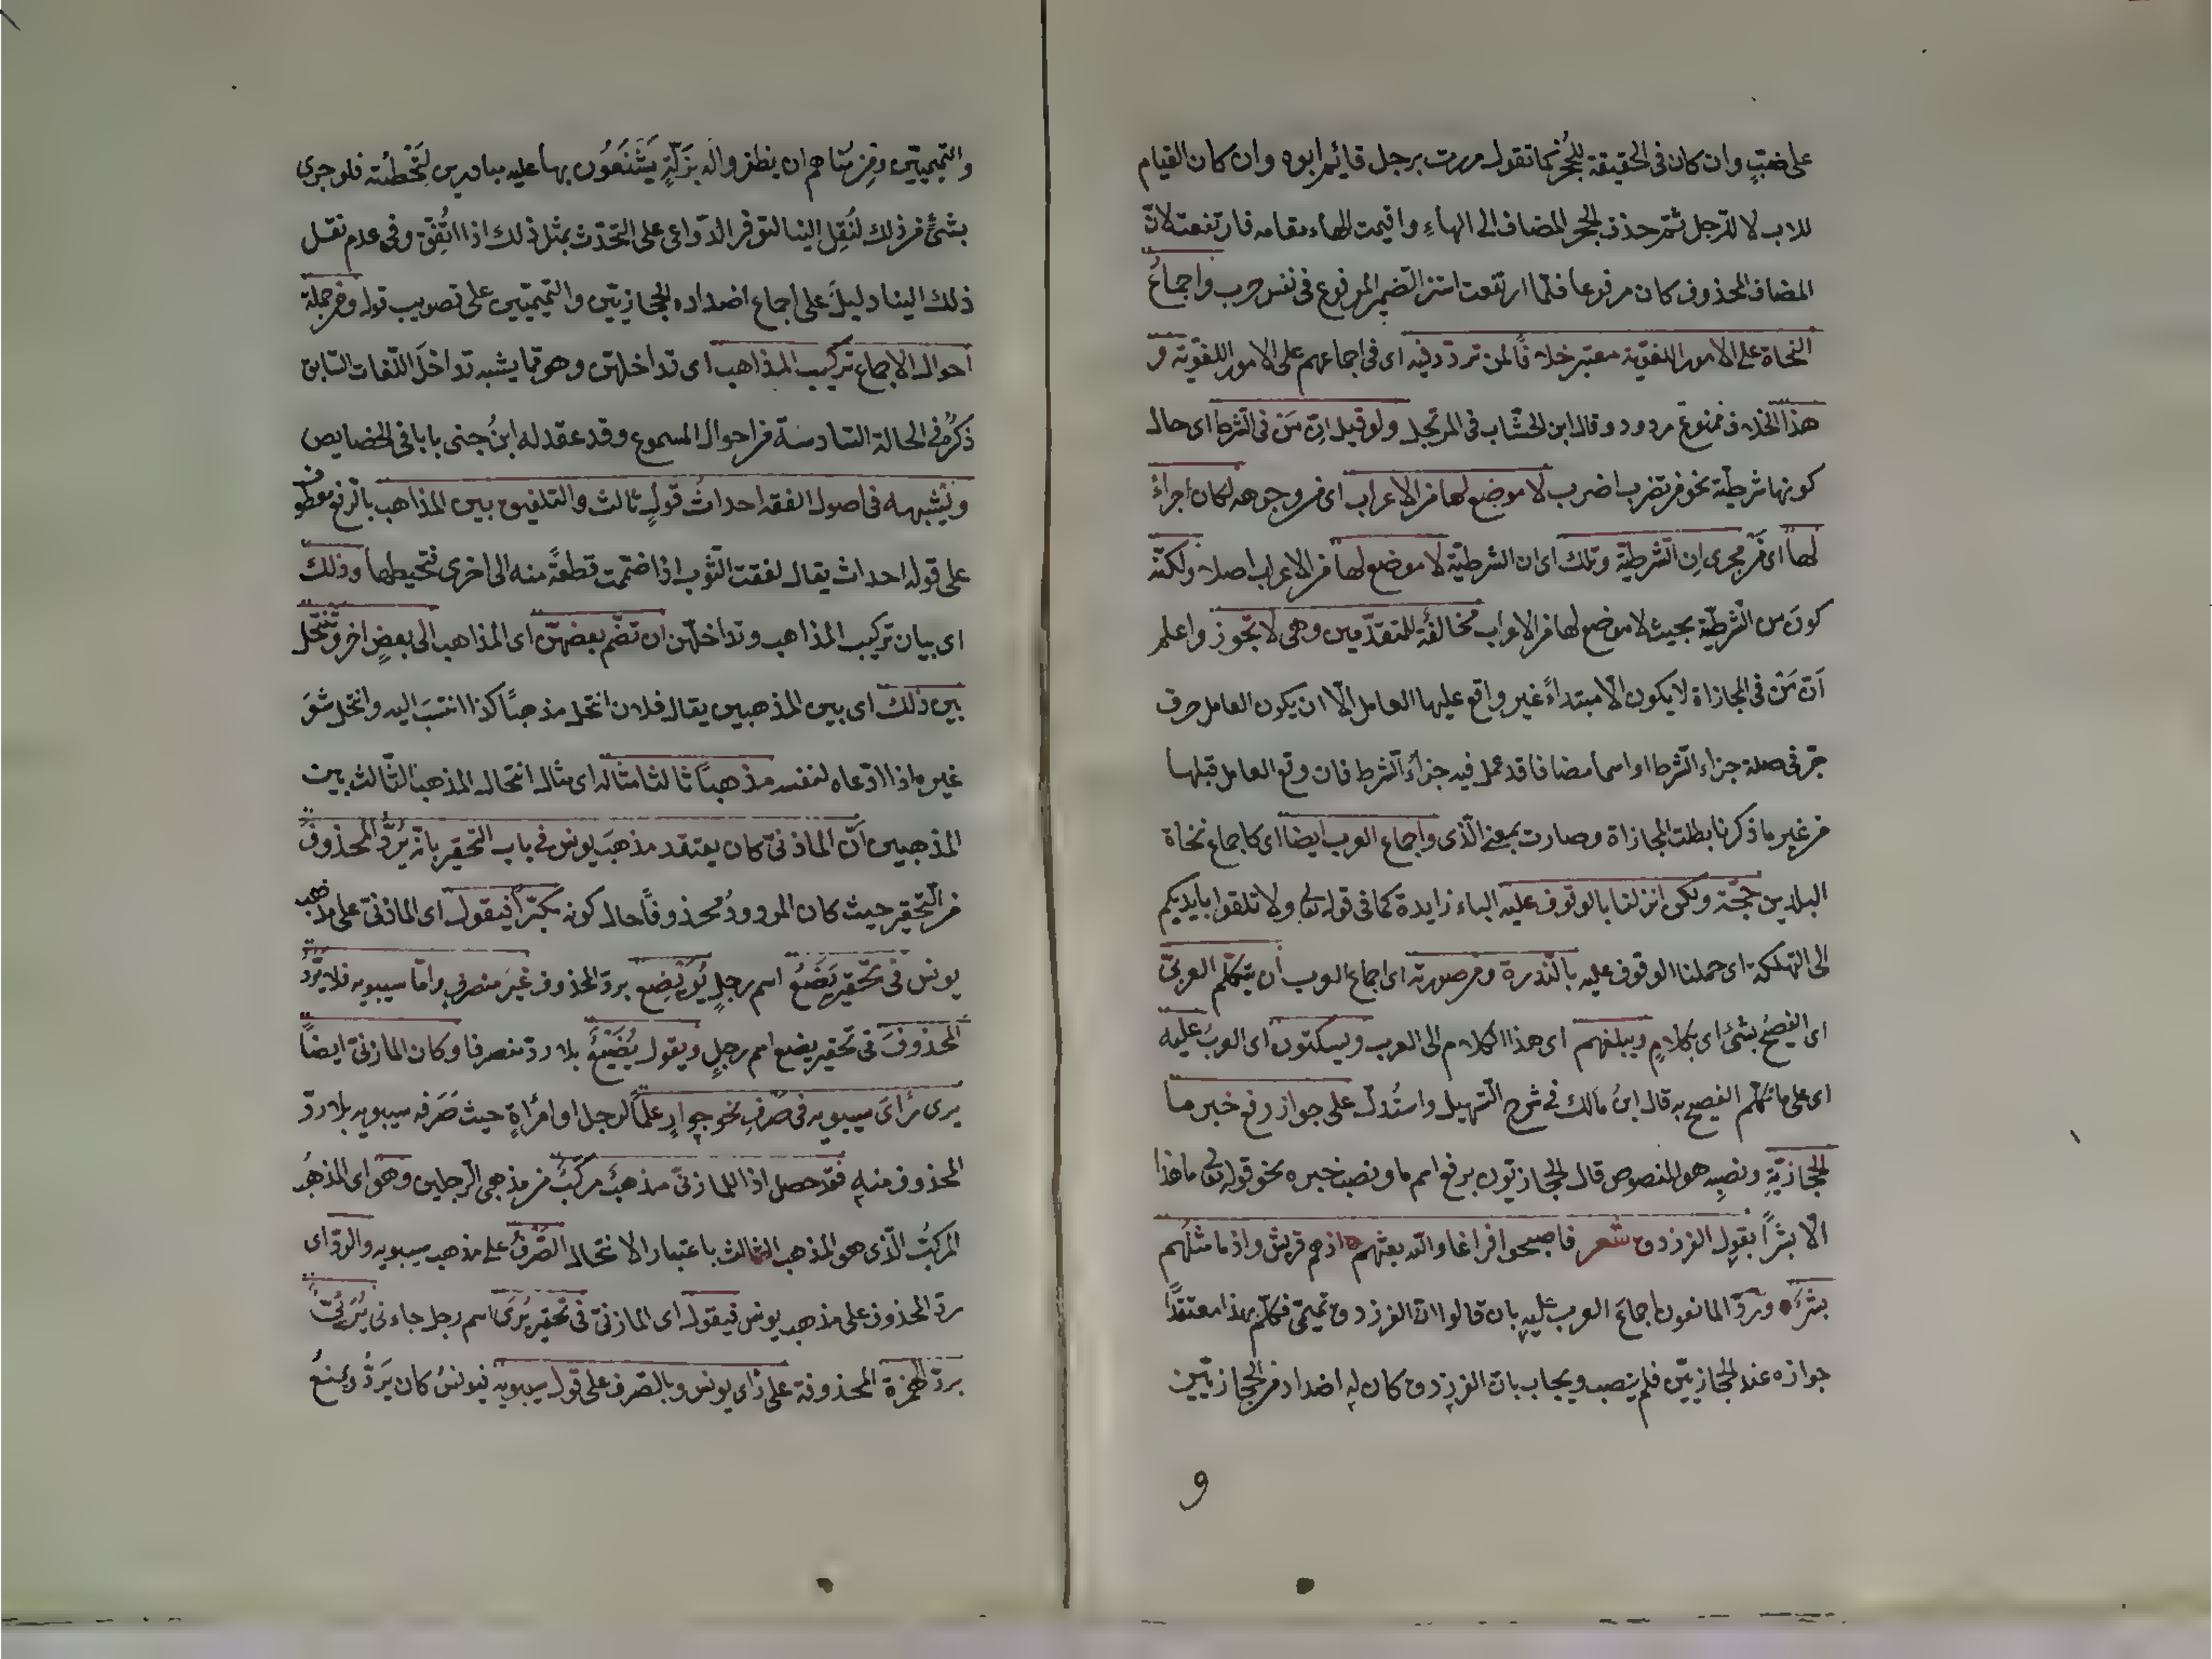 على ضبٍّ وان كان فى الحقيقة للجُحر كما تقول مررت برجل قائم ابوه وان كان القيام
للاب لا للرّجل ثمّ حذف الجحر المضاف الى الهاءِ واقيمت الهاء مقامه فارتفعت لانّ
المضاف المحذوف كان مرفوعا فلمّا ارتفعت استتر الضّمير المرفوع فى نفس خرب واجماعُ
النحاة على الامور اللغويّة معتبر خلافًا لمن تردّد فيه اى فى اجماعهم على الامور اللغويّة و
هذا الخلاف ممنوع مردود وقال ابن الخشّاب فى المرتجل ولو قيل انّ مَنْ فى الشّرط اى حال
كونها شرطيّة نحو من تضرب اضرب لا موضع لها من الاعراب اى من وجوهه لكان اجراءً
لها اى مَنْ مجرى ان الشّرطيّة وتلك اى ان الشرطيّة لا موضع لها من الاعراب اصلا ولكنّه
كونَ من الشّرطيّة بحيث لا موضع لها من الاعراب مخالفة للمتقدّمين وهى لا تجوز واعلم
انّ مَنْ فى المجازاة لا يكون الّا مبتداءً غير واقع عليها العامل الّا ان يكون العامل حرف
جرّ فى صلة جزاء الشّرط او اسما مضافا قد عمل فيه جزاءُ الشّرط فان وقع العامل قبلها
من غير ما ذكرنا بطلت المجازاة وصارت بمعنى الّذى واجماع العرب ايضا اى كاجماع نحاة
البلدين حجّة ولكن انزلنا بالوقوف عليه الباء زايدة كما فى قوله تعالى ولا تلقوا بايديكم
الى التهلكة اى حملنا الوقوف عليه بالنّدرة ومن صورته اى اجماع العرب ان يتكلّم العربىّ
اى الفصيح بشئ اى بكلامٍ ويبلغهم اى هذا الكلام الى العرب ويسكتون اى العربُ عليه
اى على ما تكلّم الفصيح به قال ابنُ مالك فى شرح التّسهيل واستُدلّ على جواز رفع خبر ما
الحجازيّةِ ونصبِه هو المنصوص قال الحجازيّون برفع اسم ما ونصب خبره نحو قوله تعالى ما هذا
الّا بشرًا بقولِ الفرزدق شعر فاصبحوا قد اعاد الله نعمتهم اذ هم قريش واذ ما مثلُهم
بشرَ وردّ المانعون اجماعَ العرب عليه بان قالوا انّ الفرزدق تميمىّ فكلّم بهذا معتقدًا
جوازه عند الحجازيّين فلم يصب ويجاب بانّ الفرزدق كان له اضداد من الحجازيّين
و
والتّميميّين ومِن مُناهم ان يظفروا له بزَلّةٍ يَشْنَعُون بها عليه مبادرين لتَخْطئته فلو جرى
بشئٌ من ذلك لنُقِل الينا لتوفر الدّواعى على التحدّث بمثل ذلك اذا اتُفِق وفى عدم نقل
ذلك الينا دليلٌ على اجماع اضداده الحجازيّين والتّميميّين على تصويب قوله ومن جملة
احوال الاجماع تركيب المذاهب اى تداخلهنّ وهو ممّا يشبه تداخلَ اللّغات السّابق
ذكرُه فى الحالة السّادسة من احوال المسموع وقد عقد له ابنُ جنى بابا فى الخصايص
ويُشبهه فى اصول الفقه احداثُ قولٍ ثالث والتلفيق بين المذاهب بالرفع معطوف
على قوله احداث يقال لفقت الثّوب اذا ضممت قطعةً منه الى اخرى فتخيطها وذلك
اى بيان تركيب المذاهب وتداخلهنّ ان تضمّ بعضهنّ اى المذاهب الى بعضٍ اخر وتنتحل
بين ذلك اى بين المذهبين يقال فلان انتحل مذهبًا كذا انتسبَ اليه وانتحل شعَر
غيره اذا ادّعاه لنفسه مذهبًا ثالثا مثاله اى مثال انتحال المذهب الثّالث بين
المذهبين انّ المازنىّ كان يعتقد مذهبَ يونس فى باب التحقير بانّه يَرُدُّ المحذوفَ
فى التّحقير حيث كان المردودُ محذوفًا حال كونه مكبّرًا فيقول اى المازنىّ على مذهب
يونس فى تحقير يَضَعُ اسم رجلٍ يُوَيْضِع بردّ المحذوف غيرَ منصرفٍ وامّا سيبويه فلا يَرُدّ
المحذوفَ فى تحقير يضع اسم رجلٍ ويقول يُضَيْعٌ بلا ردّ منصرفا وكان المازنىّ ايضًا
يرى رأىَ سيبويه فى صَرْفِ نحو جوارٍ علمًا لرجل او امرأةٍ حيث صَرَفه سيبويه بلا ردّ
المحذوف منه فقد حصل اذا للمازنىّ مذهبٌ مركّبٌ من مذهبى الرّجلين وهو اى المذهبُ
المركّبُ الّذى هو المذهب الثالث باعتبار الانتحال الصّرْفُ على مذهب سيبويه والردّ اى
ردّ المحذوف على مذهب يونس فيقول اى المازنىّ فى تحقير يُرَى اسم رجل جاءنى يُرَيْئٌ
بردّ الهمزة المحذوفة على رأى يونس وبالصّرف على قول سيبويه فيونسُ كان يَرَدُّ ويمنعُ